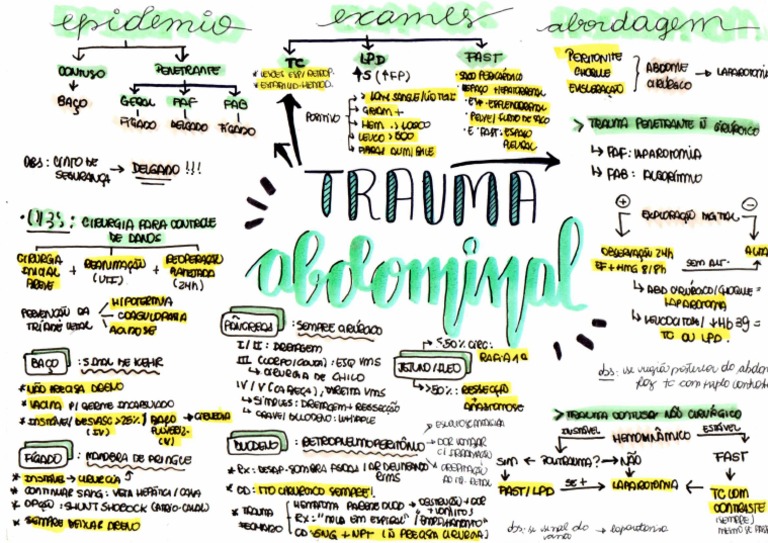 epidemio
CONTUSO
PENETRANTE
BAÇO
GERAL PAF FAB
FÍGADO DELGADO FÍGADO
OBS: CINTO DE SEGURANÇA → DELGADO !!!
: CIRURGIA PARA CONTROLE
DE DANOS
CIRURGIA INICIAL BREVE + REANIMAÇÃO (UTI) + REOPERAÇÃO PLANEJADA (24h)
PREVENÇÃO DA TRÍADE LETAL
HIPOTERMIA
COAGULOPATIA
ACIDOSE
BAÇO : SINAL DE KEHR
* NÃO PRECISA DRENO
* VACINA P/ GERME ENCAPSULADO
* INSTÁVEL/DESVASC >25% / BAÇO PULVERIZ. → CIRURGIA
(IV) (V)
FÍGADO : MANOBRA DE PRINGLE
* INSTÁVEL → CIRURGIA
* CONTINUAR SANG: VEIA HEPÁTICA / CAVA
* OPÇÃO: SHUNT SHOROCK (ÁTRIO-CAVAL)
* SEMPRE DEIXAR DRENO
exames
TC LPD FAST
* LESÕES ESP/RETROP.
* ESTÁVEL HEMOD.
↑S (↑FP)
POSITIVO
> 10ML SANGUE/
GRAM +
HEM. > 100.000
LEUCO > 500
FIBRAS ALIM/BILE
SACO PERICÁRDICO
ESPAÇO HEPATORRENAL
ESP. ESPLENORRENAL
PELVE/FUNDO DE SACO
E-FAST: ESPAÇO PLEURAL
TRAUMA
abdominal
PÂNCREAS : SEMPRE CIRÚRGICO
I/II: DRENAGEM
III (CORPO/CAUDA): ESQ VMS
↳ CIRURGIA DE CHILD
IV/V (CABEÇA), DIREITA VMS
↳ SIMPLES: DRENAGEM + RESSECÇÃO
↳ GRAVE/DUODENO: WHIPPLE
JEJUNO/ÍLEO
<50% CIRC:
RAFIA 1ª
>50%: RESSECÇÃO
ANASTOMOSE
DUODENO : RETROPNEUMOPERITÔNIO
→ DOR LOMBAR C/ IRRADIAÇÃO
→ CREPITAÇÃO AO TR. RETAL
* RX: DESAP. SOMBRA PSOAS / AR DELINEANDO RINS
* CD: TTO CIRÚRGICO SEMPRE!
* TRAUMA FECHADO
HEMATOMA PAREDE DUOD → OBSTRUÇÃO + DOR + VÔMITOS
RX: "MOLA EM ESPIRAL" / "EMPILHAMENTO"
CD: SNG + NPT (Ñ PRECISA CIRURGIA)
abordagem
PERITONITE
CHOQUE
EVISCERAÇÃO
ABDOME CIRÚRGICO → LAPAROTOMIA
> TRAUMA PENETRANTE Ñ CIRÚRGICO
↳ PAF: LAPAROTOMIA
↳ FAB: ALGORÍTMO
+ EXPLORAÇÃO DIGITAL -
OBSERVAÇÃO 24h
EF + HMG 8/8h
SEM ALT. → ALTA
↳ ABD CIRÚRGICO/CHOQUE = LAPAROTOMIA
↳ LEUCOCITOSE / ↓Hb 3g = TC OU LPD.
obs: se região posterior do abdome
faz tc com triplo contraste
> TRAUMA CONTUSO NÃO CIRÚRGICO
INSTÁVEL HEMODINÂMICO ESTÁVEL
SIM ← POLITRAUMA? → NÃO
FAST
FAST/LPD se + → LAPAROTOMIA
TC COM CONTRASTE
(SEMPRE)
obs: se sinal do → laparotomia